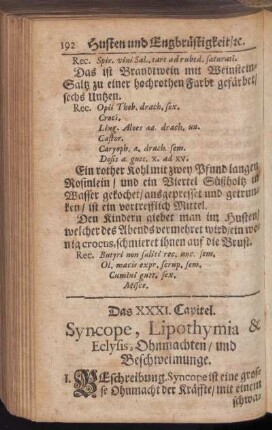 192 Husten und Engbrüstigkeit/ꝛc.
Rec. Spir. vini Sal. tart ad rubed. saturati.
Das ist Brandtwein mit Weinstein-
Saltz zu einer hochrothen Farbe gefärbet/
sechs Untzen.
Rec. Opii Theb. drach. sex.
Croci.
Ling. Aloes aa. drach. un.
Castor.
Caryoph. a. drach. sem.
Dosis a gutt. x. ad xv.
Ein rother Kohl mit zwey Pfund langen
Rosinlein/ und ein Viertel Süßholtz in
Wasser gekochet/ ausgepresset und getrun-
cken/ ist ein vortreflich Mittel.
Den Kindern giebet man im Husten/
welcher des Abends vermehret wird/ ein we-
nig crocus, schmieret ihnen auf die Brust.
Rec. Butyri non saliti rec. unc. sem.
Ol. macis expr. scrup. sem.
Cumini gutt. sex.
Misce.
Das XXXI. Capitel.
Syncope, Lipothymia &
Eclysis, Ohnmachten/ und
Beschweimunge.
1. BEschreibung. Syncope ist eine gros-
se Ohnmacht der Kräffte/ mit einem
schwa-